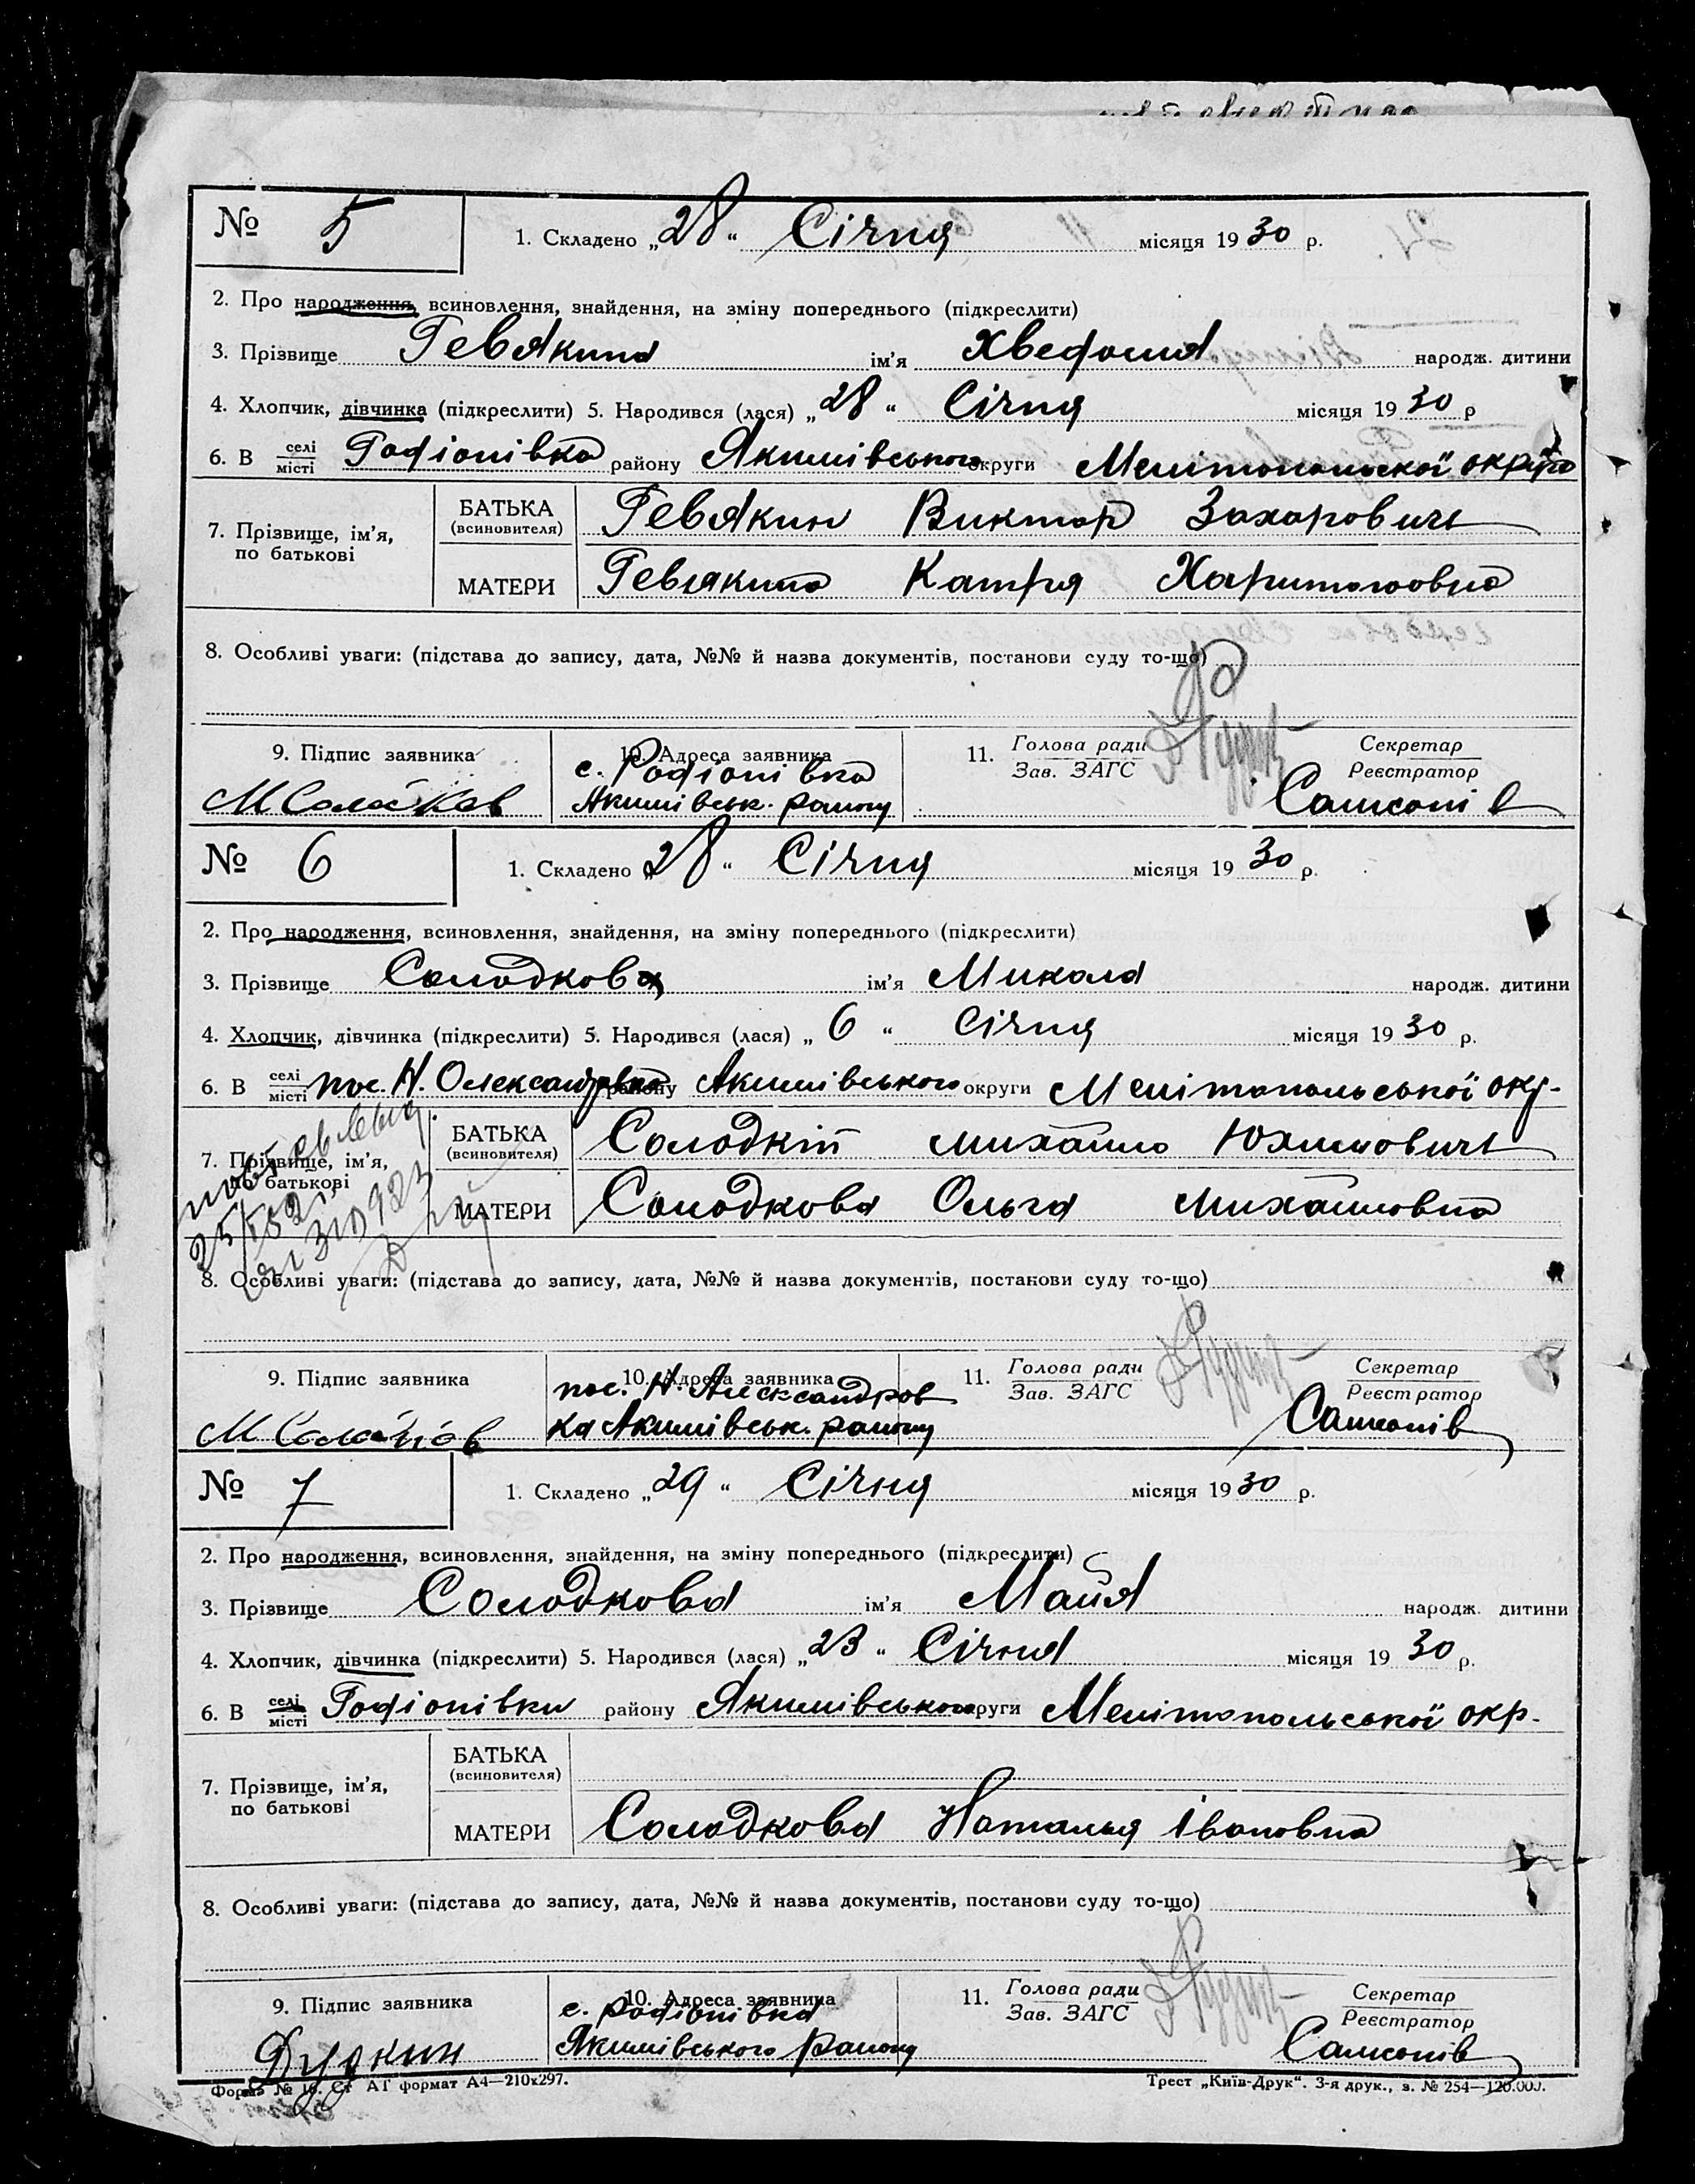 № 5 1. Складено „28“ Січня місяця 1930 р.
2. Про народження, всиновлення, знайдення, на зміну попереднього (підкреслити)
3. Прізвище Ревякина ім'я Хведосия народж. дитини
4. Хлопчик, дівчинка (підкреслити) 5. Народився (лася) „28“ Січня місяця 1930 р
6. В селі місті Родіонівка району Якимівського округи Мелітопольскої округи
7. Прізвище, ім'я, по батькові
БАТЬКА (всиновителя) Ревякин Виктор Захарович
МАТЕРИ Ревякина Катря Харитоновна
8. Особливі уваги: (підстава до запису, дата, №№ й назва документів, постанови суду то-що)
9. Підпис заявника 10. Адреса заявника 11. Голова ради Зав. ЗАГС Секретар Реєстратор
с. Родіонівка
Якимівськ. району
Самсонів
№ 6 1. Складено „28“ Січня місяця 1930 р.
2. Про народження, всиновлення, знайдення, на зміну попереднього (підкреслити)
3. Прізвище Солодков ім'я Микола народж. дитини
4. Хлопчик, дівчинка (підкреслити) 5. Народився (лася) „6“ Січня місяця 1930 р.
6. В селі місті пос. Н. Олександровка району Акимівського округи Мелітопольської окр.
7. Прізвище, ім'я, по батькові
БАТЬКА (всиновителя) Солодкій Михайло Юхимович
МАТЕРИ Солодкова Ольга Михайловна
8. Особливі уваги: (підстава до запису, дата, №№ й назва документів, постанови суду то-що)
9. Підпис заявника 10. Адреса заявника 11. Голова ради Зав. ЗАГС Секретар Реєстратор
пос. Н. Александров
ка Акимівськ. району
Самсонів
№ 7 1. Складено „29“ Січня місяця 1930 р.
2. Про народження, всиновлення, знайдення, на зміну попереднього (підкреслити)
3. Прізвище Солодкова ім'я Майя народж. дитини
4. Хлопчик, дівчинка (підкреслити) 5. Народився (лася) „23“ Січня місяця 1930 р.
6. В селі місті Родіонівки району Якимівського округи Мелітопольської окр.
7. Прізвище, ім'я, по батькові
БАТЬКА (всиновителя)
МАТЕРИ Солодкова Наталья Івановна
8. Особливі уваги: (підстава до запису, дата, №№ й назва документів, постанови суду то-що)
9. Підпис заявника 10. Адреса заявника 11. Голова ради Зав. ЗАГС Секретар Реєстратор
с. Родіонівка
Якимівського району
Самсонів
Форма № АГ формат А4—210х297. Трест „Київ-Друк“. 3-я друк., з. № 254—120.000.